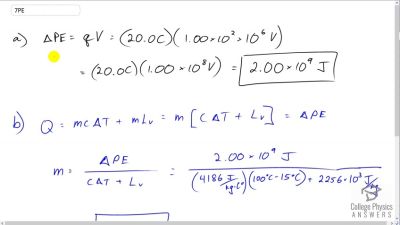 7PE
a) ΔPE = qV = (20.0C)(1.00×10²×10⁶V)
= (20.0C)(1.00×10⁸V) = 2.00×10⁹ J
b) Q = mcΔT + mLᵥ = m[cΔT + Lᵥ] = ΔPE
m = ΔPE / cΔT + Lᵥ = 2.00×10⁹ J / (4186 J/kg·C°)(100°C-15°C) + 2256×10³ J/kg
College Physics
ANSWERS